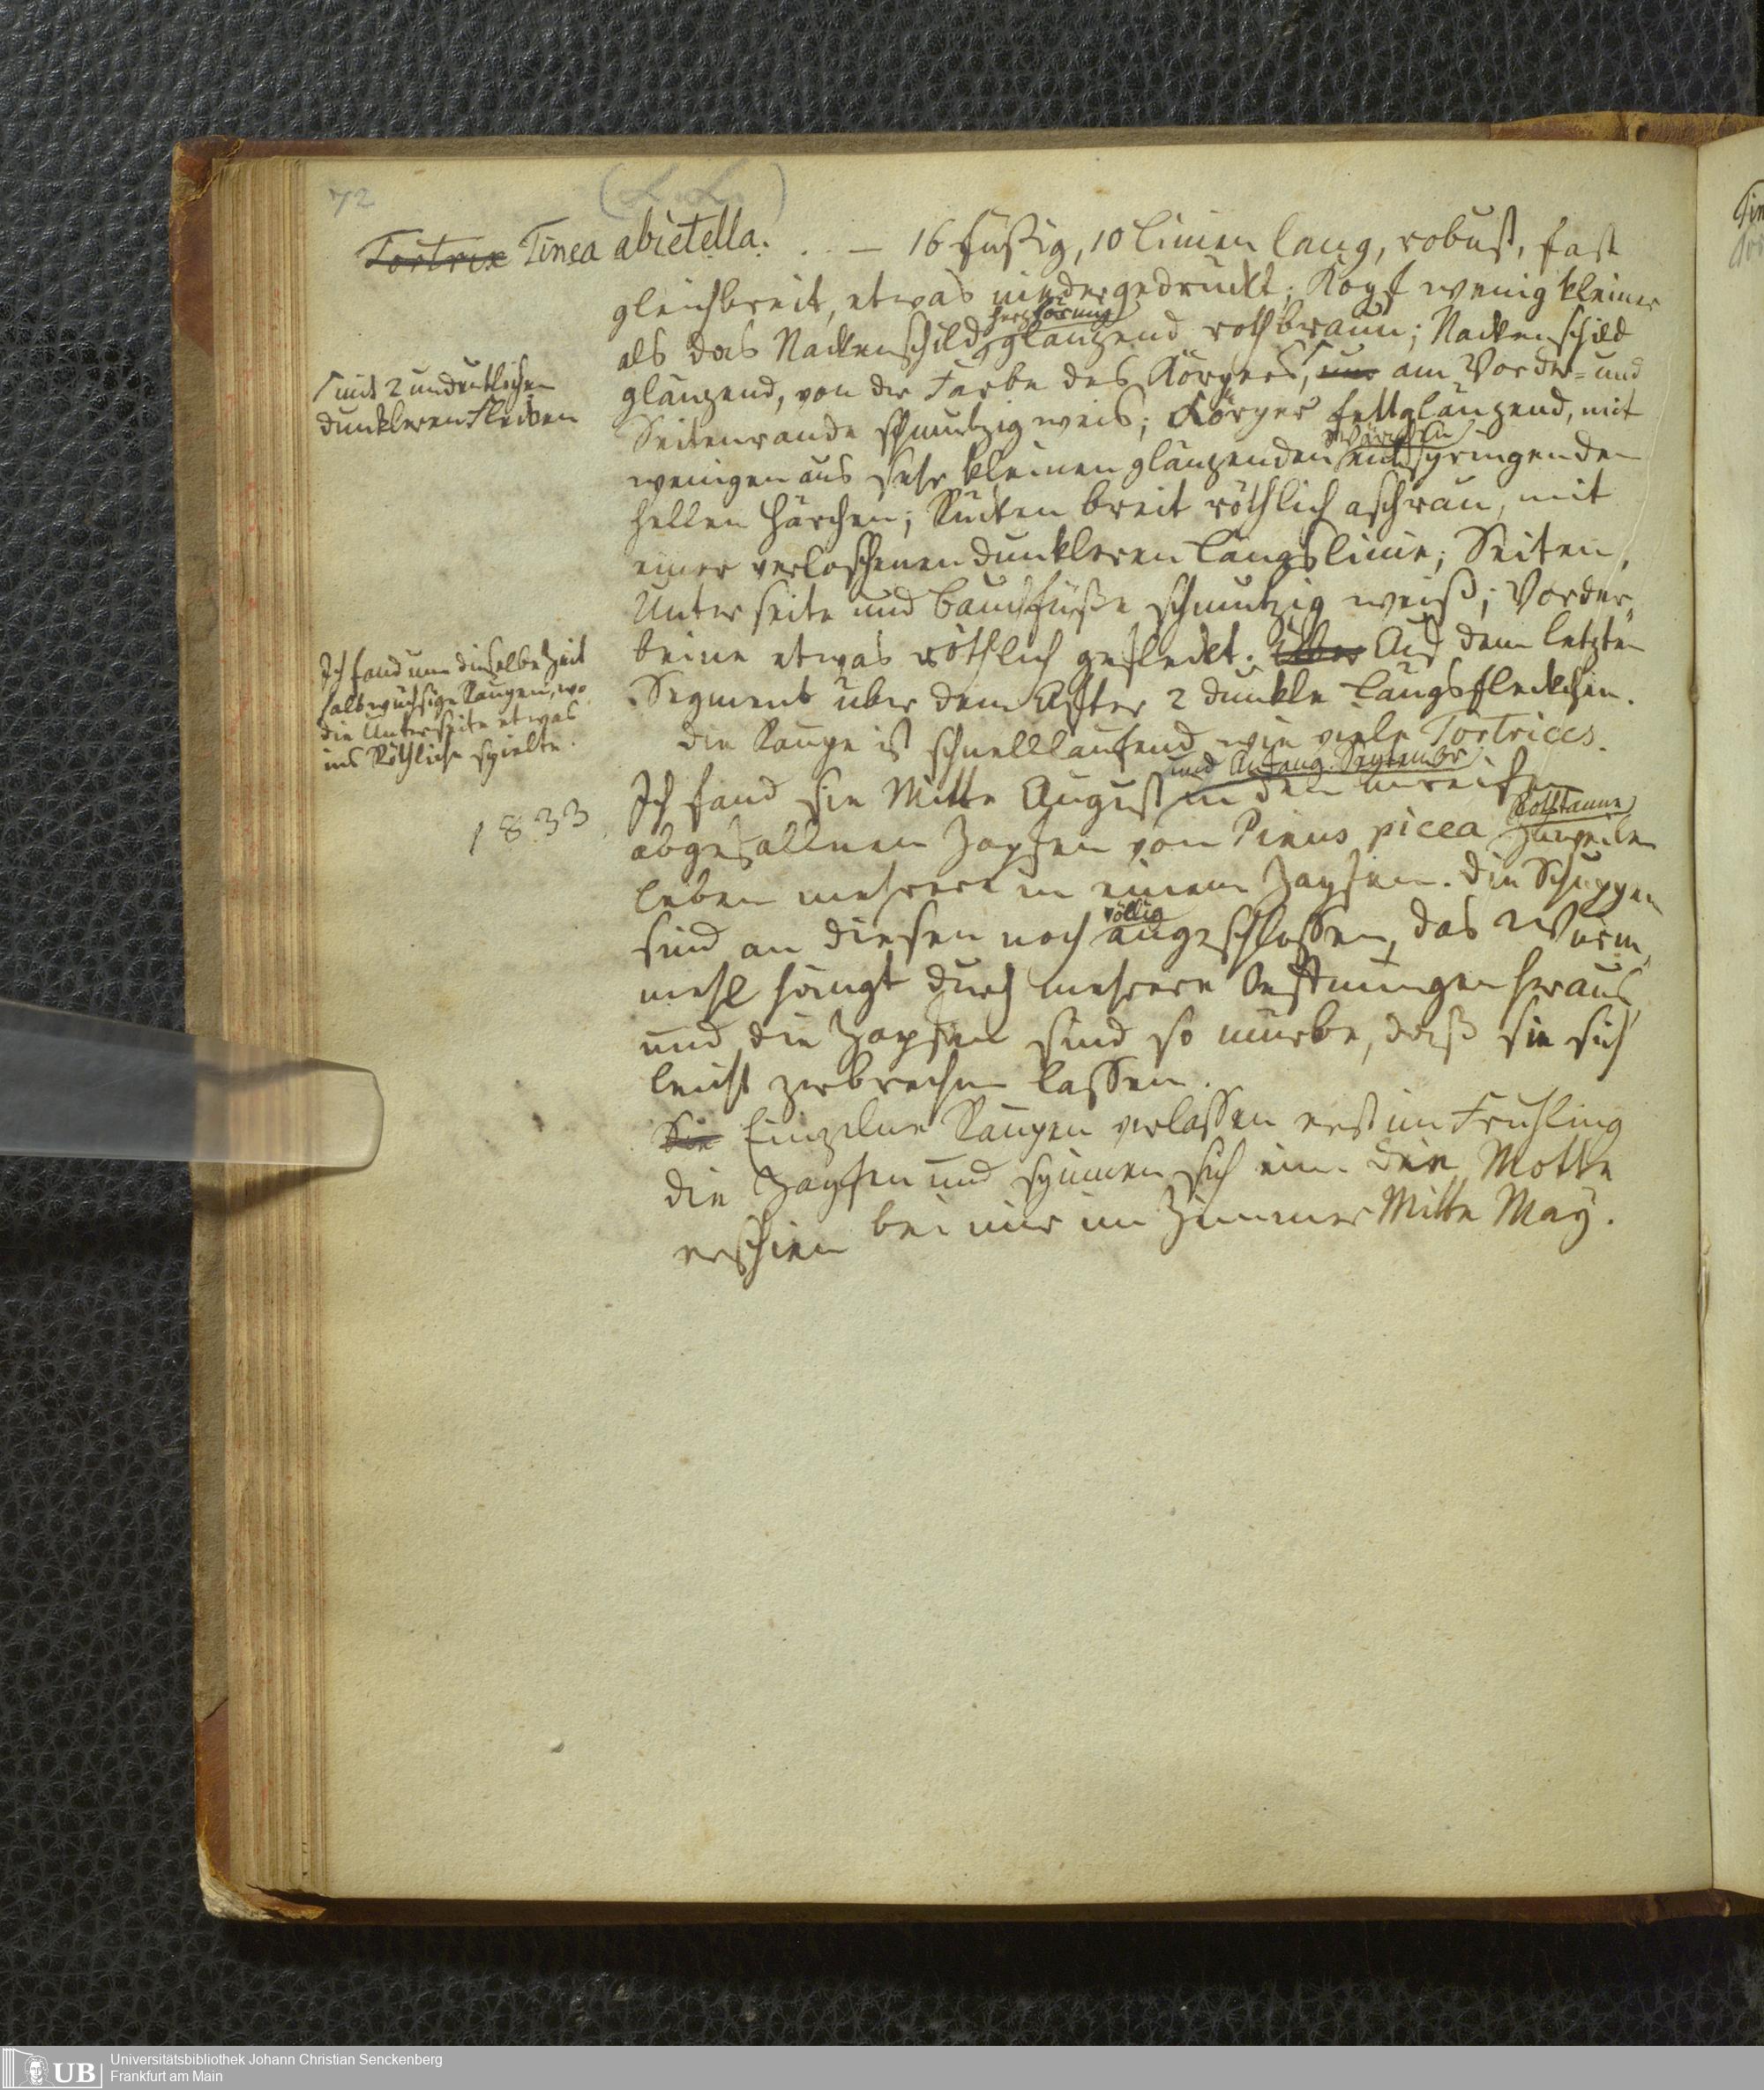 72
(L. L.)
Tortrix Tinea abietella. . — 16 füßig, 10 Linien lang, robust, fast
gleichbreit, etwas niedergedrückt; Kopf wenig kleiner
als das Nackenschild, herzförmig glänzend rothbraun; Nackenschild
glänzend, von der Farbe des Körpers, nur am Vorder- und
Seitenrande schmutzig weis; Körper fettglänzend, mit
wenigen aus sehr kleinen glänzenden Wärzchen entspringenden
hellen Härchen; Rücken breit röthlich aschgrau, mit
einer verloschenen dunkleren Längslinie; Seiten,
Unterseite und Bauchfüße schmutzig weiß; Vorder-
beine etwas röthlich gefleckt. Ueber Auf dem letzten
Segment über dem After 2 dunkle Längsfleckchen.
Die Raupe ist schnelllaufend wie viele Tortrices.
Ich fand sie Mitte August und Anfang September in den unreifen
abgefallenen Zapfen von Pinus picea Rothtanne zuweilen
leben mehrere in einem Zapfen. Die Schuppen
sind an diesen noch völlig angeschlossen, das Wurm-
mehl hängt durch mehrere Oeffnungen heraus,
und die Zapfen sind so mürbe, daß sie sich
leicht zerbrechen lassen.
Die Einzelne Raupen verlassen erst im Frühling
die Zapfen und spinnen sich ein. Die Motte
erschien bei mir im Zimmer Mitte May.
mit 2 undeutlichen
dunkleren Flecken
Ich fand um dieselbe Zeit
halbwüchsige Raupen, wo
die Unterseite etwas
ins Röthliche spielte.
1833.
Universitätsbibliothek Johann Christian Senckenberg
Frankfurt am Main
UB